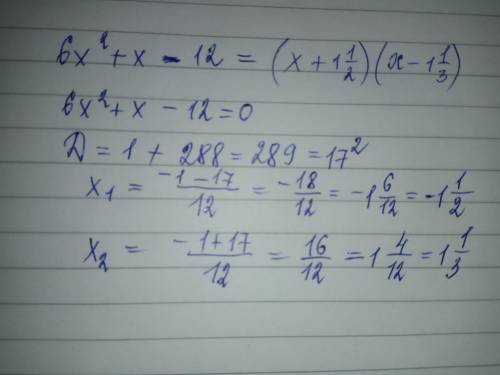 6x² + x - 12 = (x + 1 1/2)(x - 1 1/3)
6x² + x - 12 = 0
D = 1 + 288 = 289 = 17²
x₁ = (-1 - 17)/12 = -18/12 = -1 6/12 = -1 1/2
x₂ = (-1 + 17)/12 = 16/12 = 1 4/12 = 1 1/3